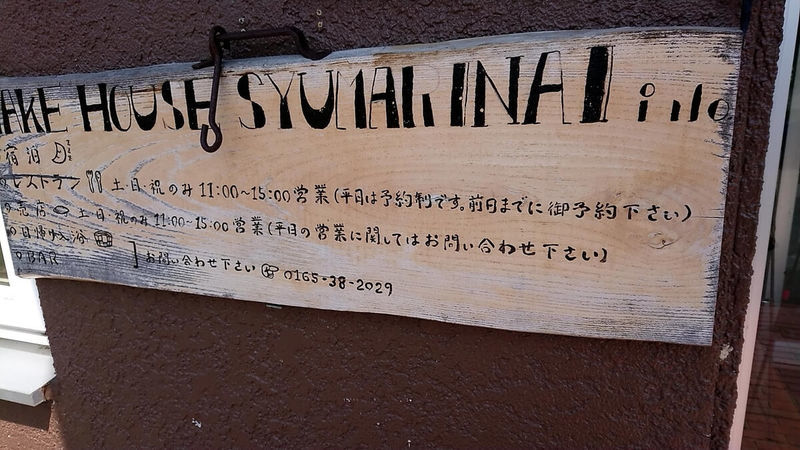 AKE HOUSE SYUMARINAI info
宿泊
レストラン 土・日・祝のみ 11:00~15:00 営業(平日は予約制です。前日までに御予約下さい)
売店 土・日・祝のみ 11:00~15:00 営業(平日の営業に関してはお問い合わせ下さい)
日帰り入浴
BAR
お問い合わせ下さい 0165-38-2029